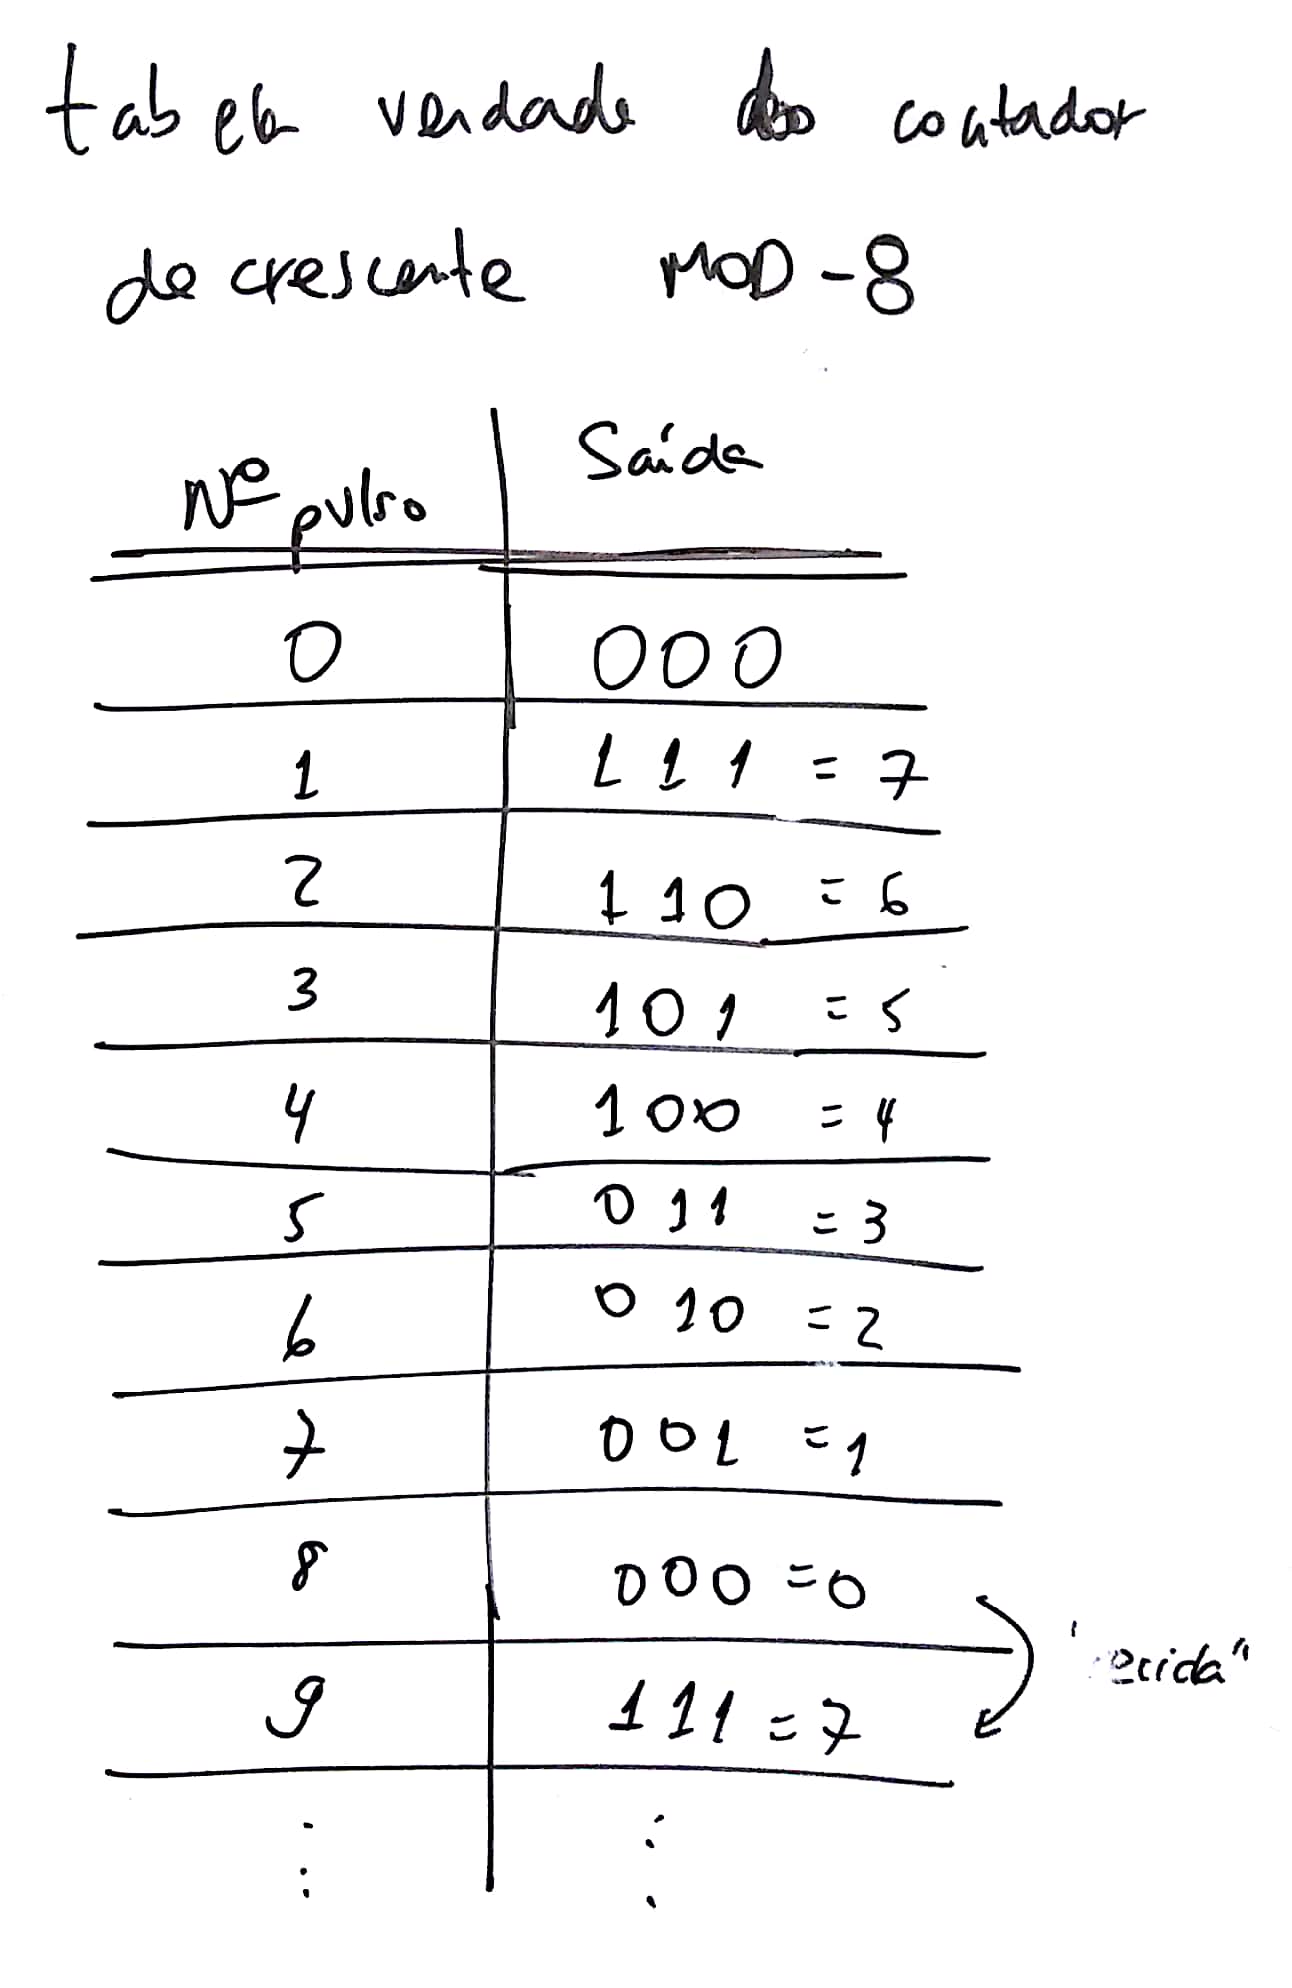 tabela verdade do contador
decrescente MOD-8
Nº pulso Saída
0 000
1 111 = 7
2 110 = 6
3 101 = 5
4 100 = 4
5 011 = 3
6 010 = 2
7 001 = 1
8 000 = 0
9 111 = 7
⋮ ⋮